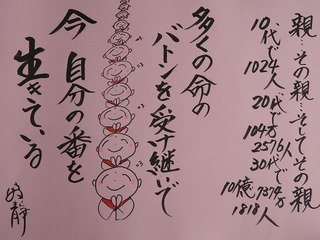 親…その親…そしてその親
10代で
1024人
20代で
104万
2576人
30代で
10億7374万
1818人
多くの命の
バトンを受け継いで
今 自分の番を
生きている